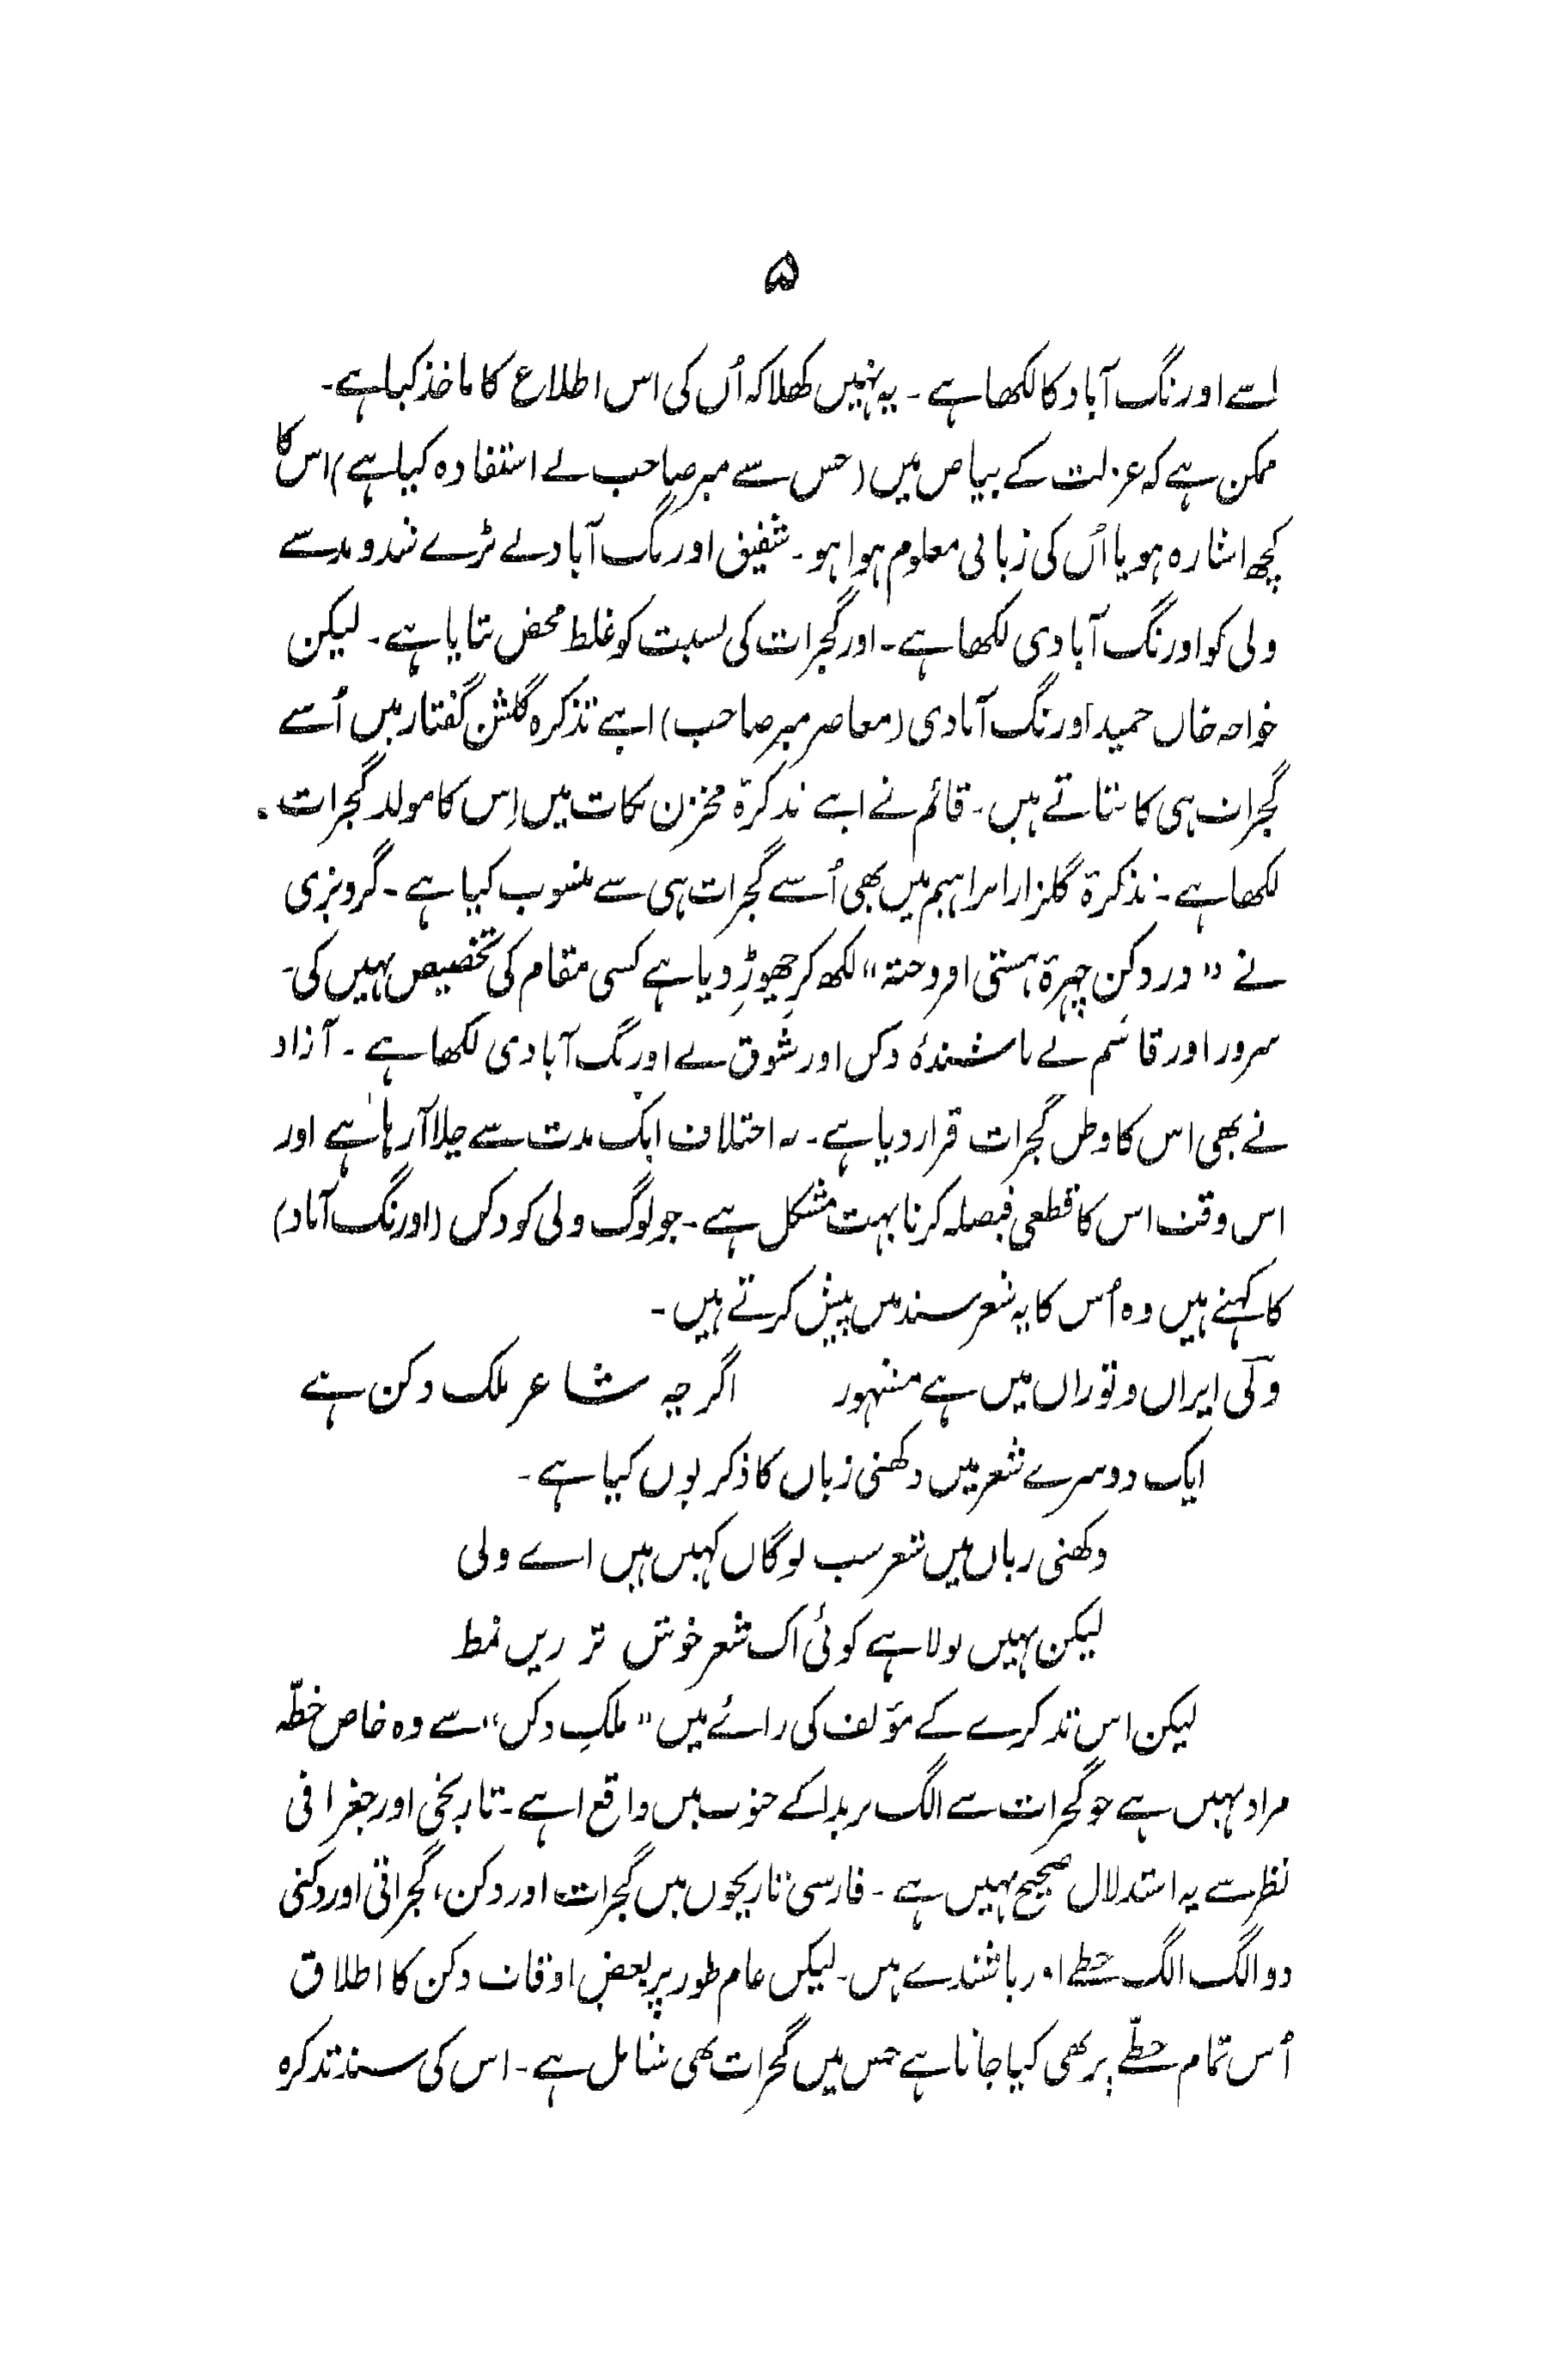 ۵
اسے اورنگ آباد کا لکھا ہے ۔ یہ نہیں کھلا کہ اُن کی اس اطلاع کا ماخذ کیا ہے۔
ممکن ہے کہ عزلت کے بیاض میں (جس سے میر صاحب نے استفادہ کیا ہے) اس کا
کچھ اشارہ ہو یا اُن کی زبانی معلوم ہوا ہو ۔ شفیق اورنگ آباد نے بڑے شد و مد سے
ولی کو اورنگ آبادی لکھا ہے۔ اور گجرات کی نسبت کو غلط محض بتایا ہے۔ لیکن
خواجہ خاں حمید اورنگ آبادی (معاصر میر صاحب) اپنے تذکرہ گلشن گفتار میں اُسے
گجرات ہی کا بتاتے ہیں۔ قائم نے اپنے تذکرۃ مخزن نکات میں اِس کا مولد گجرات
لکھا ہے۔ تذکرۃ گلزار ابراہیم میں بھی اُسے گجرات ہی سے منسوب کیا ہے ۔ گردیزی
نے "در دکن چہرۃ ہستی افروختہ" لکھ کر چھوڑ دیا ہے کسی مقام کی تخصیص نہیں کی۔
سرور اور قاسم نے باشندۂ دکن اور شوق نے اورنگ آبادی لکھا ہے ۔ آزاد
نے بھی اس کا وطن گجرات قرار دیا ہے۔ یہ اختلاف ایک مدت سے چلا آرہا ہے اور
اس وقت اس کا قطعی فیصلہ کرنا بہت مشکل ہے۔ جو لوگ ولی کو دکن (اورنگ آباد)
کا کہتے ہیں وہ اُس کا یہ شعر سند میں پیش کرتے ہیں ۔
ولی ایران و توراں میں ہے مشہور اگرچہ شاعر ملک دکن ہے
ایک دوسرے شعر میں دکھنی زباں کا ذکر یوں کیا ہے ۔
دکھنی زباں میں شعر سب لوگاں کہیں ہیں اے ولی
لیکن نہیں بولا ہے کوئی اک شعر خوش تر زیں نمط
لیکن اس تذکرے کے مؤلف کی رائے میں "ملکِ دکن" سے وہ خاص خطّہ
مراد نہیں ہے جو گجرات سے الگ نربدا کے جنوب میں واقع اہے۔ تاریخی اور جغرافی
نظر سے یہ استدلال صحیح نہیں ہے ۔ فارسی تاریخوں میں گجرات اور دکن، گجراتی اور دکنی
دو الگ الگ خطے اور باشندے ہیں۔ لیکن عام طور پر بعض اوقات دکن کا اطلاق
اُس تمام خطّے پر بھی کیا جاتا ہے جس میں گجرات بھی شامل ہے۔ اس کی سند تذکرہ